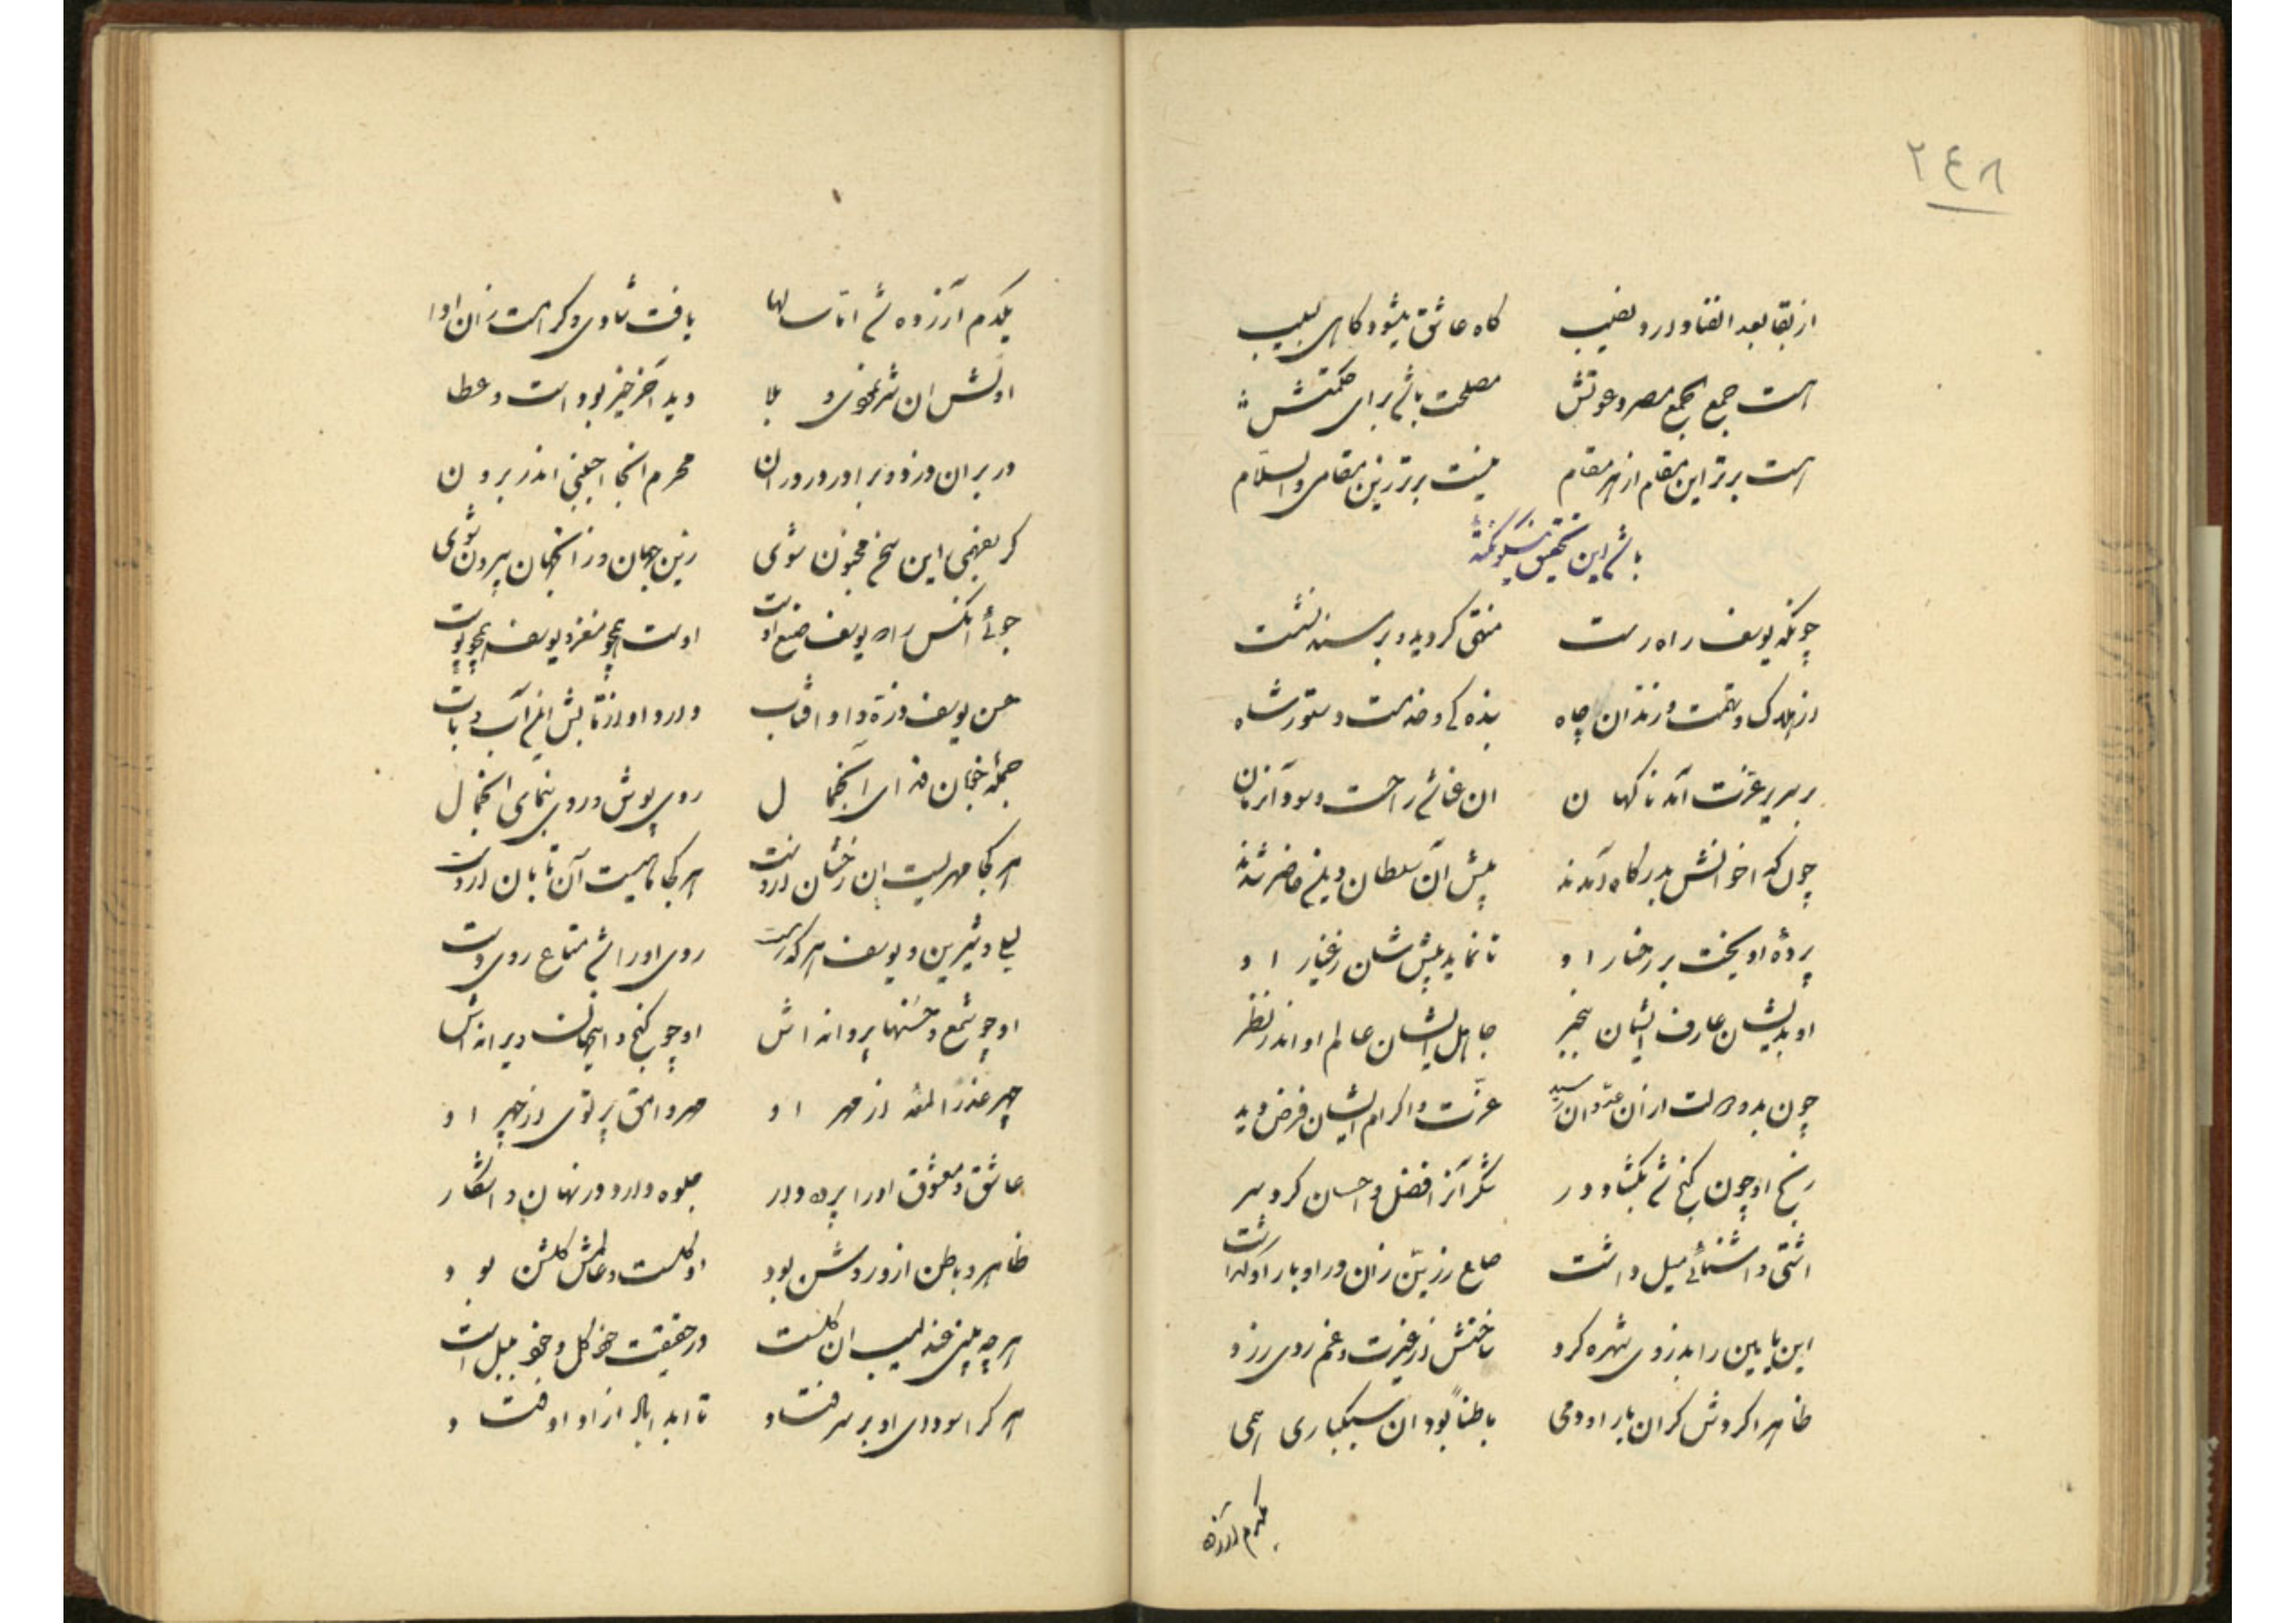 ٢٤٨
از بقا بعد الفنا دارد نصیب گاه عاشق میشود گاهی لبیب
هست جمع الجمع مصر دعوتش مصلحت باشد برای حکمتش
هست برتر این مقام از هر مقام نیست برتر زین مقامی والسلام
باشد این تحقیق نیکو نکته
چونکه یوسف راه رست متقی گردید و بر مسند نشست
از هلاک و تهمت و زندان چاه بنده کی وخدمت و دستور شاه
بر سریر عزت آمد ناکهان ان غنا شد راحت و سود آنزمان
چون که اخوانش بدرگاه آمدند پیش آن سلطان دین حاضر شدند
پردهٔ اویخت بر رخسار او تا نماید پیش شان رخسار او
او بدیشان عارف ایشان بیخبر جاهل ایشان عالم او اندر نظر
چون بدو دولت ازان عدوان رسید عزت و اکرام ایشان فرض دید
رنج او چون کنج شد بکشاد در شکر آنرا فضل و احسان کرد سر
اشتی و اشنائی میل داشت صاع زرین زان در او بار او گذاشت
ابن یامین را بدزدی شهره کرد ساختش از غیرت و غم روی زرد
ظاهرا کردش کران بار ادمی باطناً بود ان سبکباری همی
یکدم آزرده
یکدم آزرده شد اما سالها یافت شادی و کرامت زان ادا
اولش ان شر نمودی و بلا دید آخر خیر بود است و عطا
در بران دزد و برادر در دران محرم انجا اجنبی اندر برون
کر بفهمی این سخن مجنون شوی زین جهان و زانجهان بیرون شوی
جوئے انکس راه یوسف صنع اوست اوست همچو مغز و یوسف همچو پوست
حسن یوسف ذره و او افتاب دارد او از تابش این آب و تاب
جمله خوبان فدای آنجمال روی پوش و روی بنمای انجمال
هر کجا مهریست ان رخشان ازوست هر کجا ماهیست آن تابان ازوست
لیلی و شیرین و یوسف هر که هست روی او را شد متاع روی دست
او چو شمع و حسنها پروانه اش او چو کنج و اینجهان ویرانه اش
چهر عذرا لمعه از مهر او مهر وامق پرتوی از چهر او
عاشق و معشوق او را پرده دار جلوه دارد در نهان و اشکار
ظاهر و باطن ازو روشن بود او کلست و عالمش کلشن بود
هر چه بینی عندلیب ان کلست در حقیقت خود کل و خود بلبل است
هر کرا سودای او بر سر فتاد تا ابد اباد از او اوفتاد